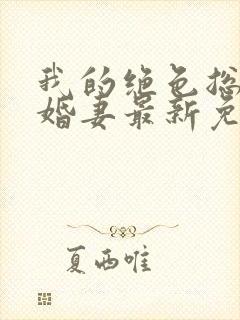 我的绝色总
婚妻最新免
夏西唯